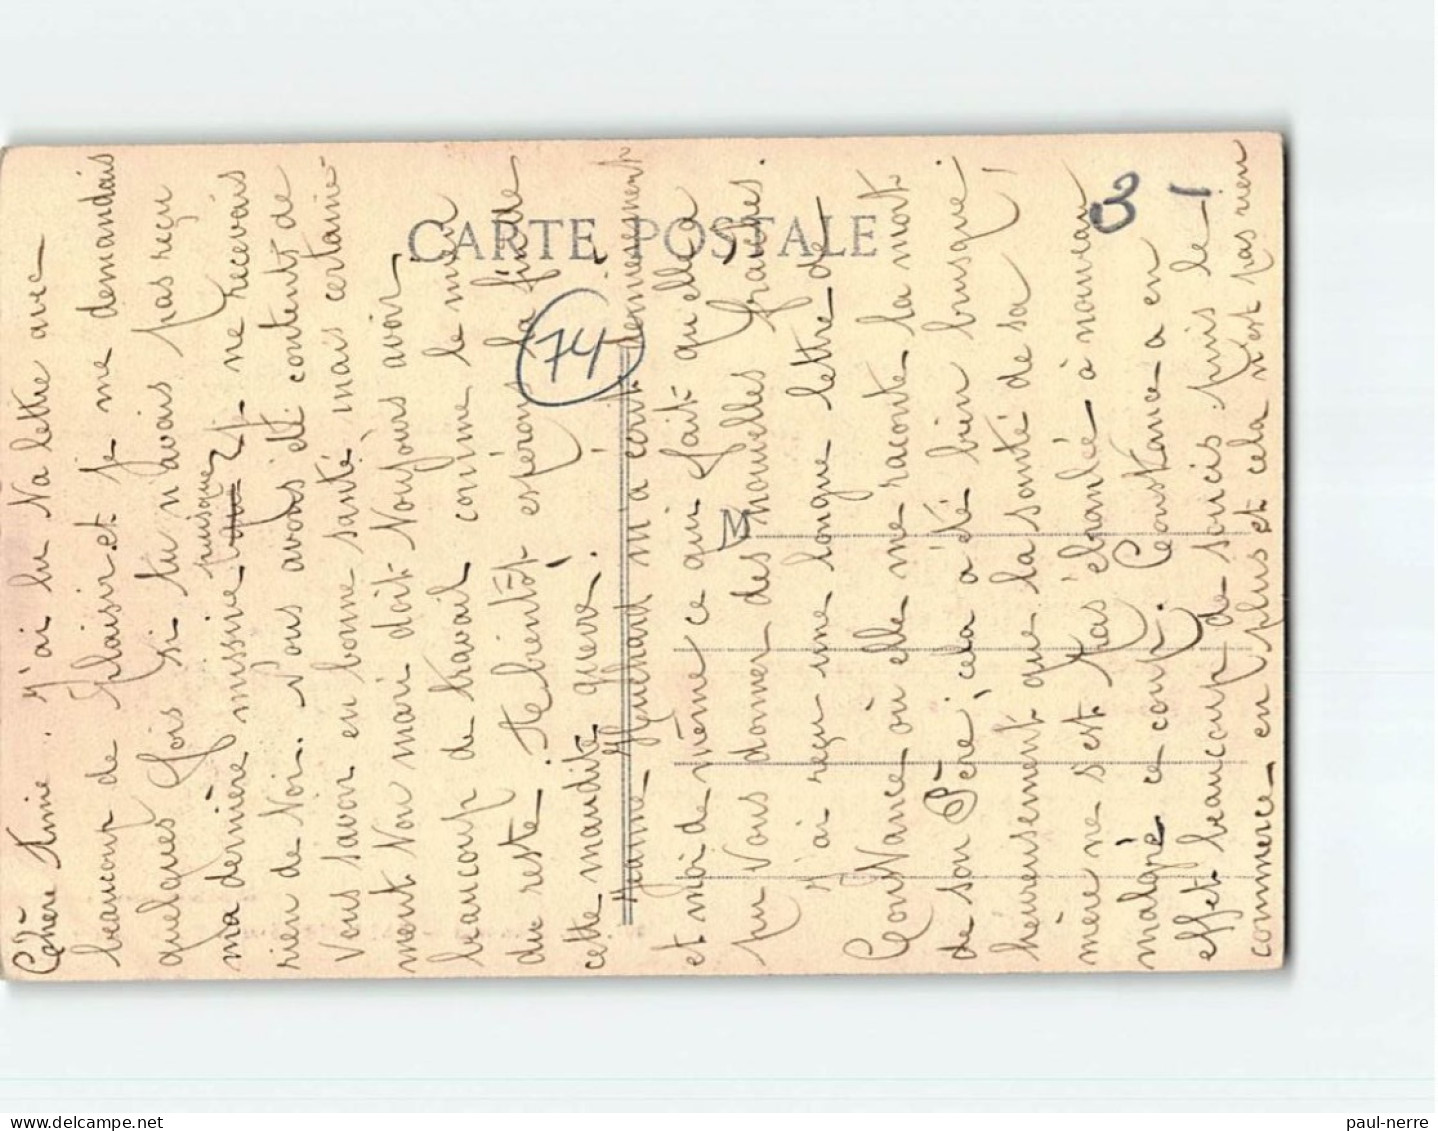 Chère Amie. J'ai lu Va lettre avec
beaucoup de plaisir et je me demandais
quelques fois si tu n'avais pas reçu
puisque
ma dernière missive je ne recevais
rien de Voi. Nous avons été contents de
Vous savoir en bonne santé mais certaine-
ment Von mari doit Voujours avoir
beaucoup de travail comme le mien
du reste. A bientôt espérons la fin de
cette maudite guerre.
Jeanne m'a écrit dernièrement
et moi de même ce qui fait qu'elle a
pu Vous donner des nouvelles fraîches.
J'ai reçu une longue lettre de
Constance où elle me raconte la mort
de son Père, cela a été bien brusque
heureusement que la santé de sa
mère ne s'est pas ébranlée à nouveau
malgré ce coup. Constance a en
effet beaucoup de soucis puis le
commerce en plus et cela n'est pas rien
CARTE POSTALE
M
74
3
1
paul-nerre
delcampe.net